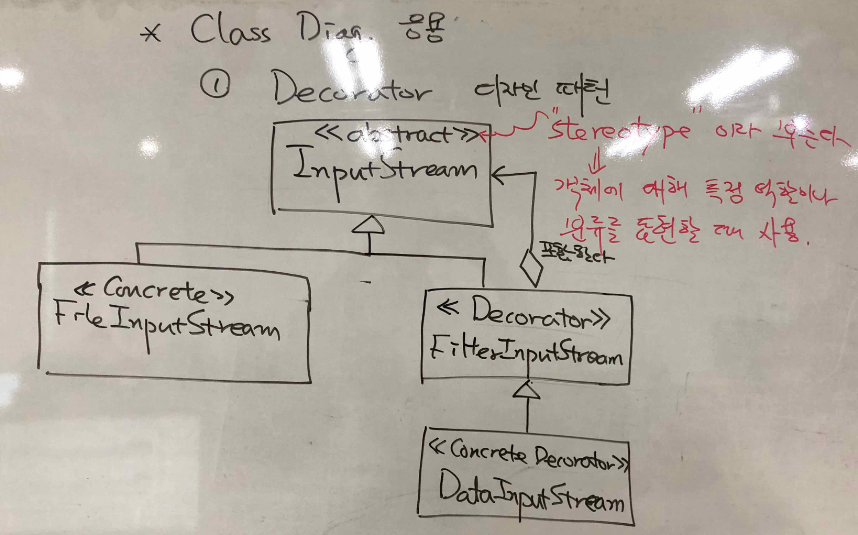 * Class Diag. 응용
① Decorator 디자인 패턴
<<abstract>>
InputStream
"stereotype" 이라 부른다
객체에 대해 특정 역할이나
분류를 표현할 때 사용.
포함한다
<<Concrete>>
FileInputStream
<<Decorator>>
FilterInputStream
<<Concrete Decorator>>
DataInputStream